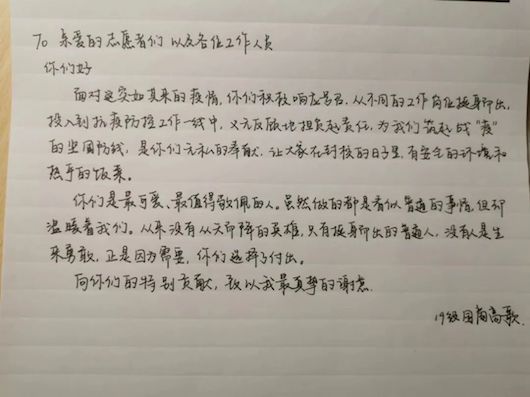 To 亲爱的志愿者们以及各位工作人员
你们好
面对这突如其来的疫情,你们积极响应号召,从不同的工作岗位挺身而出,
投入到抗疫防控工作一线中,义无反顾地担负起责任,为我们筑起战“疫”
的坚固防线,是你们无私的奉献,让大家在封校的日子里,有安全的环境和
热乎的饭菜。
你们是最可爱、最值得敬佩的人。虽然做的都是看似普通的事情,但却
温暖着我们。从来没有从天而降的英雄,只有挺身而出的普通人,没有人是生
来勇敢,正是因为需要,你们选择了付出。
向你们的特别贡献,致以我最真挚的谢意.
19级国商高歌.